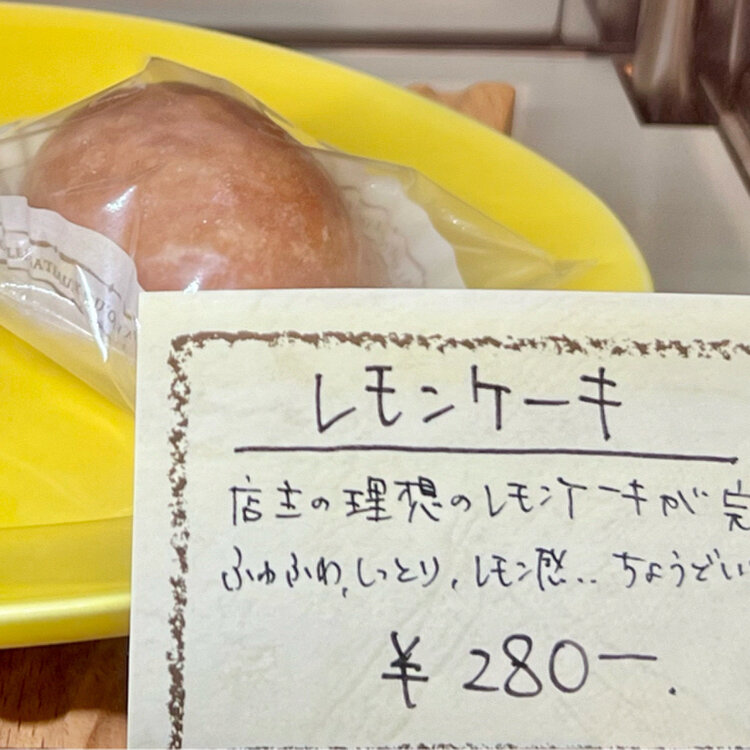 レモンケーキ
店主の理想のレモンケーキが完
ふわふわ、しっとり、レモン感‥ちょうどい
¥280ー.